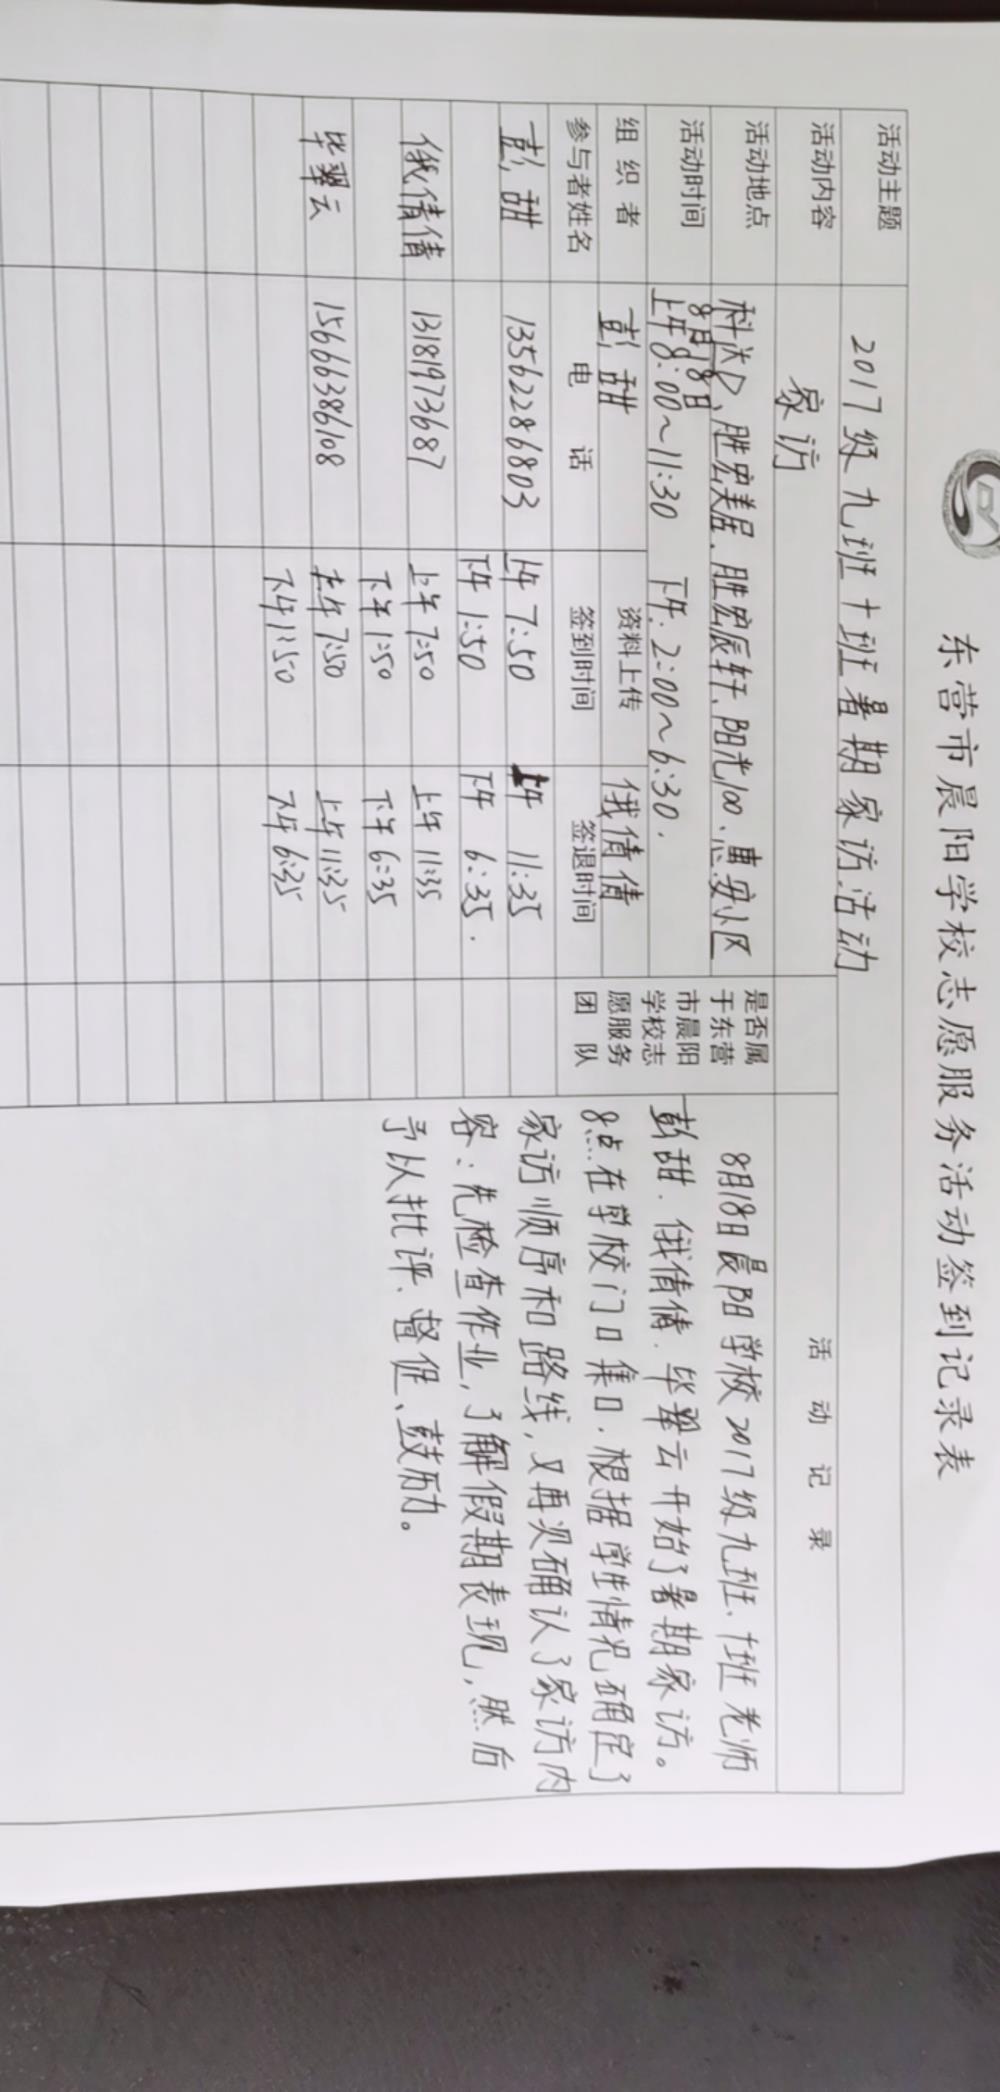 东营市晨阳学校志愿服务活动签到记录表
活动主题 2017级九班十班暑期家访活动
活动内容 家访
活动记录
活动地点 科达、胜宏美居、胜宏辰轩、阳光100、惠安小区
活动时间 8月18日
上午8:00～11:30 下午:2:00～6:30.
组织者 彭甜 资料上传 俄倩倩
参与者姓名 电话 签到时间 签退时间
是否属
于东营
市晨阳
学校志
愿服务
团队
彭甜 13562286803 上午7:50 上午 11:35
下午1:50 下午 6:35.
俄倩倩 13181973687 上午7:50 上午 11:35
下午1:50 下午6:35
毕翠云 15666386108 上午7:50 上午11:35
下午1:50 下午6:35
8月18日晨阳学校2017级九班、十班老师
彭甜、俄倩倩、毕翠云开始了暑期家访。
8点在学校门口集合.根据学生情况确定了
家访顺序和路线,又再次确认了家访内
容:先检查作业,了解假期表现,然后
予以批评、督促、鼓励。